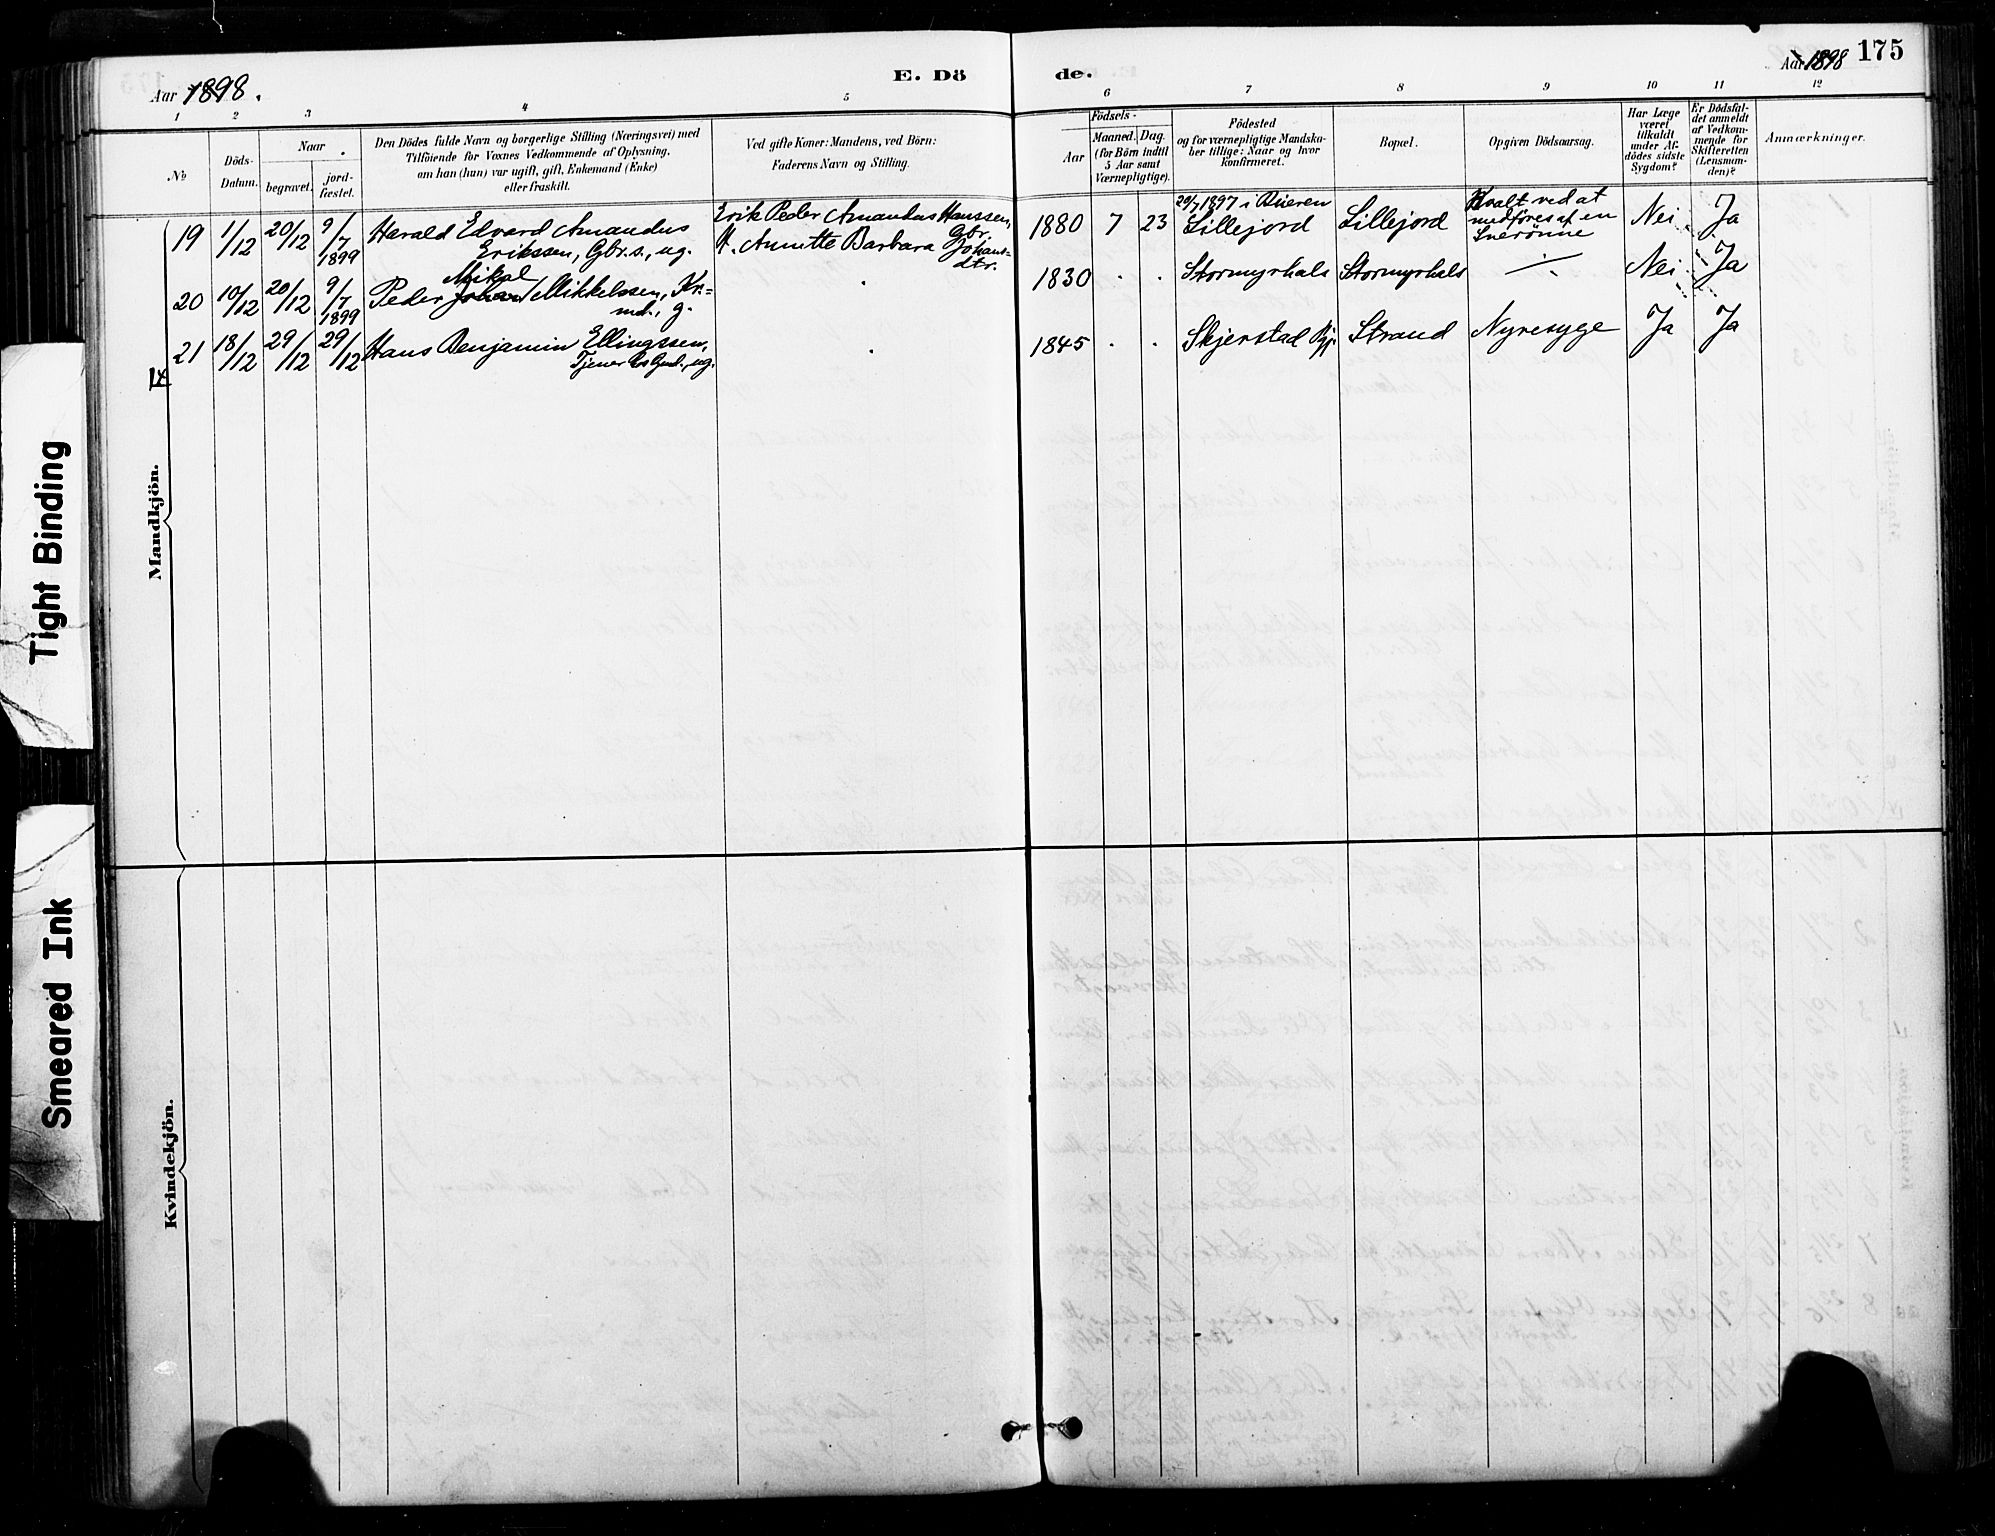 Aar 1898.
E. Dö
de.
Aar 1898
175
1 2 3 4 5 6 7 8 9 10 11 12
No
Döds-
Datum.
Naar
begravet.
jord-
fæstet.
Den Dödes fulde Navn og borgerlige Stilling (Næringsvei) med
Tilföiende for Voxnes Vedkommende af Oplysning,
om han (hun) var ugift, gift, Enkemand (Enke)
eller fraskilt.
Ved gifte Koner: Mandens, ved Börn:
Faderens Navn og Stilling.
Födsels-
Aar
Maaned. Dag.
(for Börn indtil
5 Aar samt
Værnepligtige).
Födested
og for værnepligtige Mandska-
ber tillige: Naar og hvor
konfirmeret.
Bopæl.
Opgiven Dödsaarsag.
Har Læge
været
tilkaldt
under Af-
dödes sidste
Sygdom?
Er Dödsfal-
det anmeldt
af Vedkom-
mende for
Skifteretten
(Lensman-
den)?
Anmærkninger.
19 1/12 20/12 9/7 1899 Harald Edvard Amandus
Erikssen, Gbr.s., ug.
Erik Peder Amandus Hanssen,
Gbr.
H. Annette Barbara Johans-
dtr.
1880 7 23
1897 i Bueren
Lillejord Lillejord
Kvalt ved at
medföres af en
Nei Ja
20 10/12 20/12 9/7 1899 Mikal
Peder Johan Mikkelssen, Kr.=
md., g.
. 1830 . . Stormyrhals Stormyrhals ·/· Nei Ja
21 18/12 29/12 29/12 Hans Benjamin Ellingssen,
Tjener ug.
. 1845 . . Skjerstad Pgj. Strand Nyresyge Ja Ja
Mandkjön.
Kvindekjön.
Tight Binding
Smeared Ink